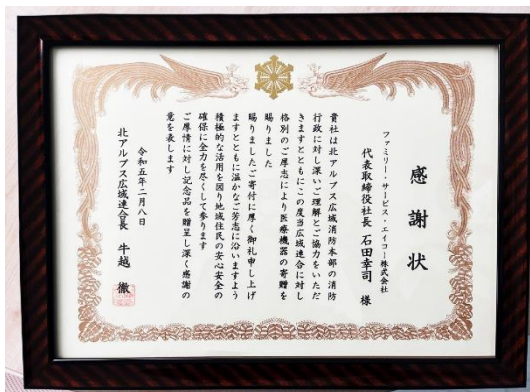 感謝状
ファミリー・サービス・エイコー株式会社
代表取締役社長 石田幸司 様
貴社は北アルプス広域消防本部の消防
行政に対し深いご理解とご協力をいただ
きますとともにこの度当広域連合に対し
格別のご厚志により医療機器の寄贈を
賜りました
賜りましたご寄付に厚く御礼申し上げ
ますとともに温かなご芳志に沿いますよう
積極的な活用を図り地域住民の安心安全の
確保に全力を尽くして参ります
ご厚情に対し記念品を贈呈し深く感謝の
意を表します
令和五年二月八日
北アルプス広域連合長 牛越 徹